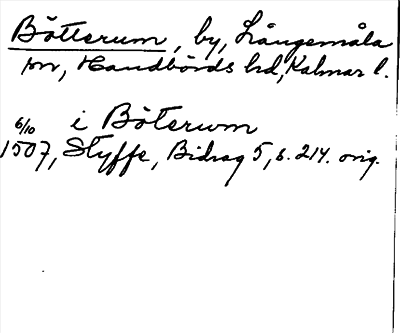 Bötterum, by, Långemåla
sn, Handbörds hd, Kalmar l.
6/10 i Böterum
1507, Styffe, Bidrag 5, s. 214. orig.